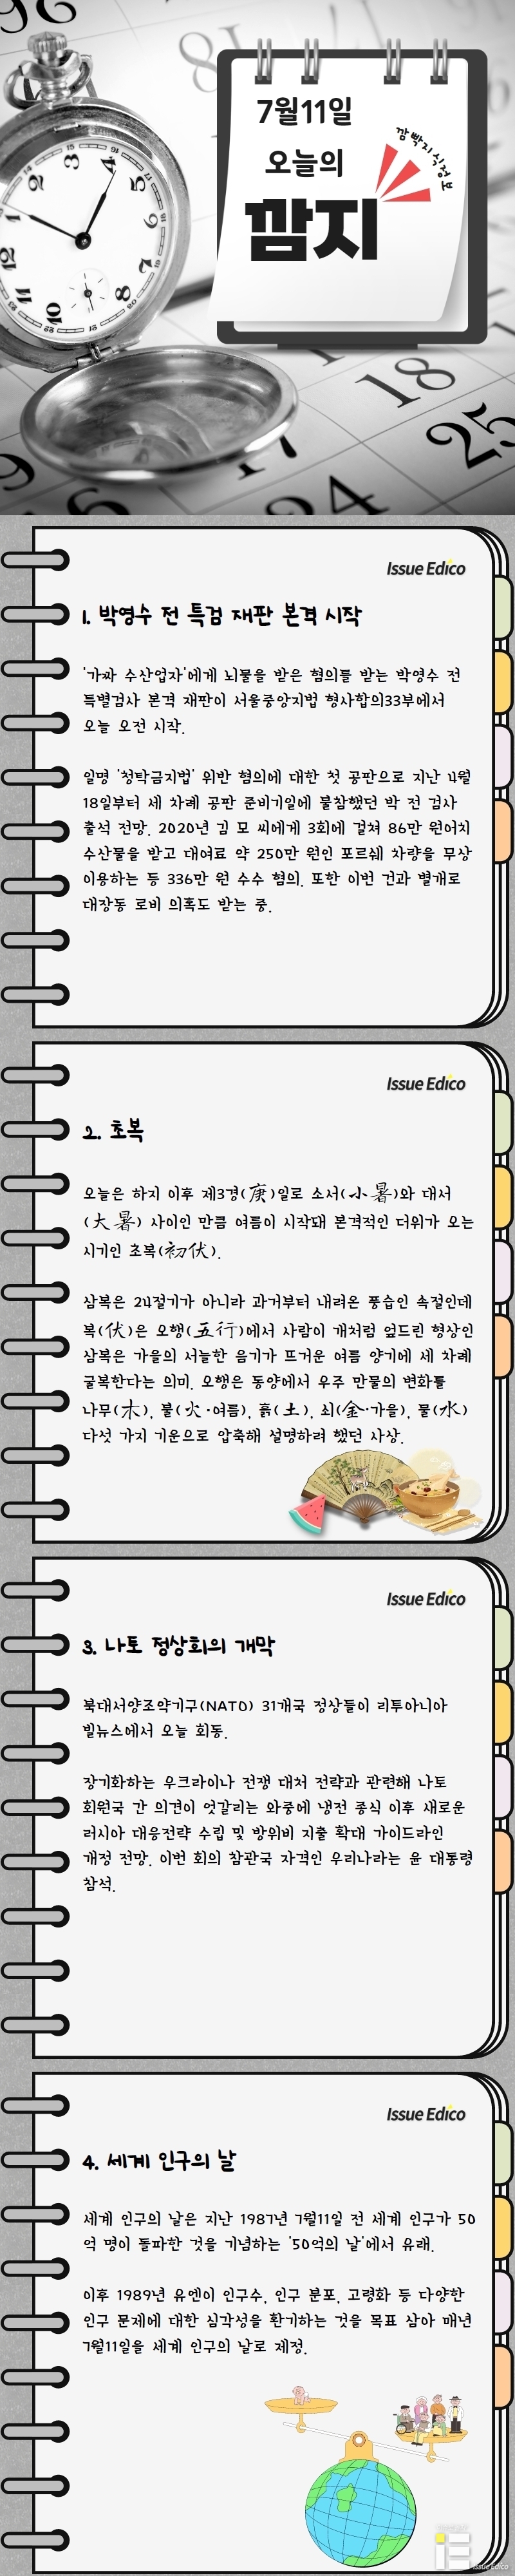 7월11일
오늘의
깜지
깜빡지식정보
Issue Edico
1. 박영수 전 특검 재판 본격 시작
'가짜 수산업자'에게 뇌물을 받은 혐의를 받는 박영수 전
특별검사 본격 재판이 서울중앙지법 형사합의33부에서
오늘 오전 시작.
일명 '청탁금지법' 위반 혐의에 대한 첫 공판으로 지난 4월
18일부터 세 차례 공판 준비기일에 불참했던 박 전 검사
출석 전망. 2020년 김 모 씨에게 3회에 걸쳐 86만 원어치
수산물을 받고 대여료 약 250만 원인 포르쉐 차량을 무상
이용하는 등 336만 원 수수 혐의. 또한 이번 건과 별개로
대장동 로비 의혹도 받는 중.
Issue Edico
2. 초복
오늘은 하지 이후 제3경(庚)일로 소서(小暑)와 대서
(大暑) 사이인 만큼 여름이 시작돼 본격적인 더위가 오는
시기인 초복(初伏).
삼복은 24절기가 아니라 과거부터 내려온 풍습인 속절인데
복(伏)은 오행(五行)에서 사람이 개처럼 엎드린 형상인
삼복은 가을의 서늘한 음기가 뜨거운 여름 양기에 세 차례
굴복한다는 의미. 오행은 동양에서 우주 만물의 변화를
나무(木), 불(火·여름), 흙(土), 쇠(金·가을), 물(水)
다섯 가지 기운으로 압축해 설명하려 했던 사상.
Issue Edico
3. 나토 정상회의 개막
북대서양조약기구(NATO) 31개국 정상들이 리투아니아
빌뉴스에서 오늘 회동.
장기화하는 우크라이나 전쟁 대처 전략과 관련해 나토
회원국 간 의견이 엇갈리는 와중에 냉전 종식 이후 새로운
러시아 대응전략 수립 및 방위비 지출 확대 가이드라인
개정 전망. 이번 회의 참관국 자격인 우리나라는 윤 대통령
참석.
Issue Edico
4. 세계 인구의 날
세계 인구의 날은 지난 1987년 7월11일 전 세계 인구가 50
억 명이 돌파한 것을 기념하는 '50억의 날'에서 유래.
이후 1989년 유엔이 인구수, 인구 분포, 고령화 등 다양한
인구 문제에 대한 심각성을 환기하는 것을 목표 삼아 매년
7월11일을 세계 인구의 날로 제정.
iE
Issue Edico